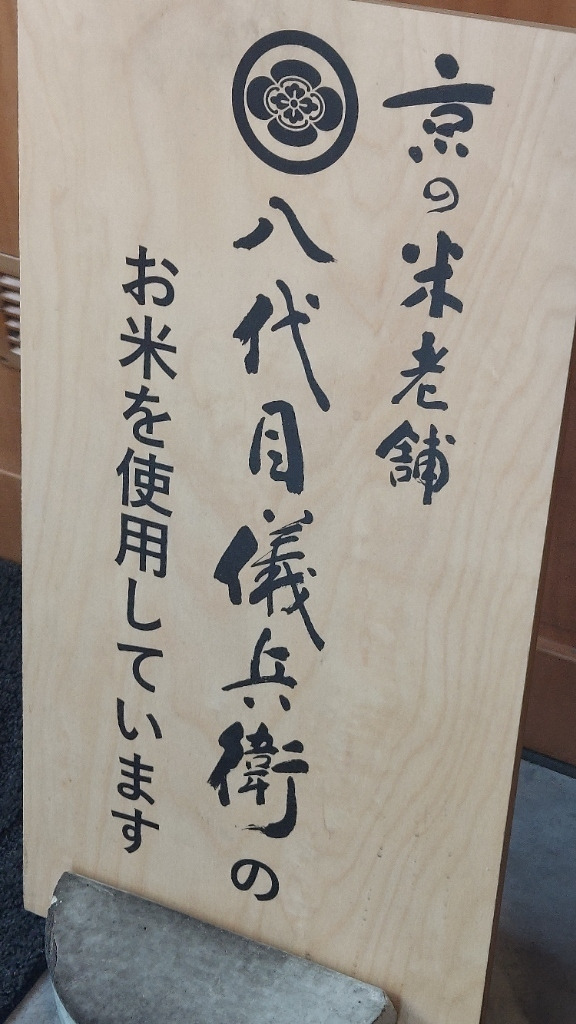 京の米老舗
八代目儀兵衛の
お米を使用しています